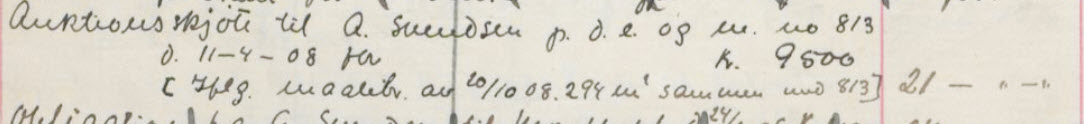 Auktionsskjöte til A. Svendsen p. d. e. og m. no 813
d. 11-4-08 for kr. 9500
[Iflg. maalebr. av 20/10 08. 294 m² sammen med 813] 21 — " —"
til